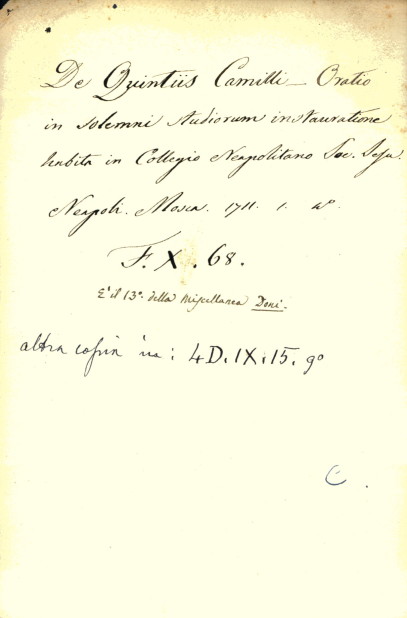 De Quintiis Camilli — Oratio
in solemni studiorum instauratione
habita in Collegio Neapolitano Soc. Jesu.
Neapoli. Mosca. 1711. 1. 4°.
F. X. 68.
E' il 13°. della Miscellanea Doni.
altra copia in: 4D. IX. 15. 9°
C.